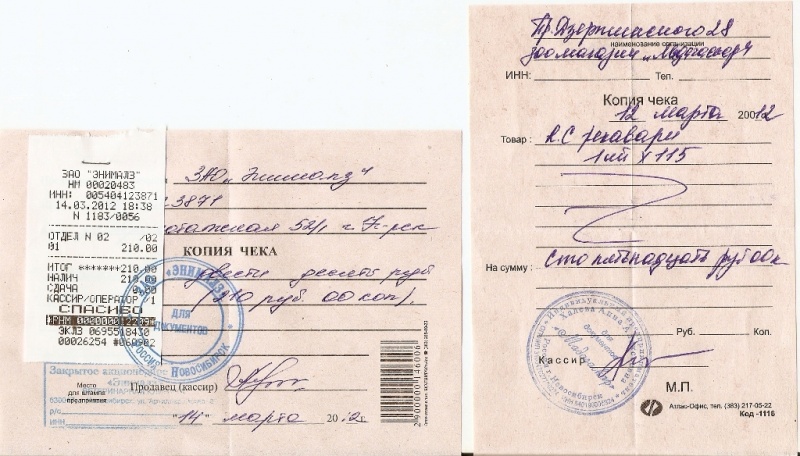 ЗАО "ЭНИМАЛЗ"
НМ 00020483
ИНН: 005404123871
14.03.2012 18:38
N 1183/0056
ОТДЕЛ N 02 /02
01 210.00
ИТОГ *******210.00
НАЛИЧ 210.00
СДАЧА 0.00
КАССИР/ОПЕРАТОР 1
СПАСИБО
ЭКЛЗ 0695518430
00026254 #060902
ЗАО "Энималз"
3871
52/1
КОПИЯ ЧЕКА
двести десять руб
(210 руб. 00 коп).
ЭНИМАЛЗ
ДЛЯ
ДОКУМЕНТОВ
НОВОСИБИРСК
Закрытое акционерное
Место
для штампа
предприятия
р/с
ИНН
Продавец (кассир)
"14" марта 2012г.
2900000146006
Пр. Дзержинского 28
наименование организации
зоомагазин
ИНН: Тел.
Копия чека
12 марта 20012
Товар:
1 шт х 115
На сумму: Сто пятьнадцать руб 00к
Руб. Коп.
Кассир
г. Новосибирск
М.П.
Атлас-Офис, тел. (383) 217-05-22
Код -1116